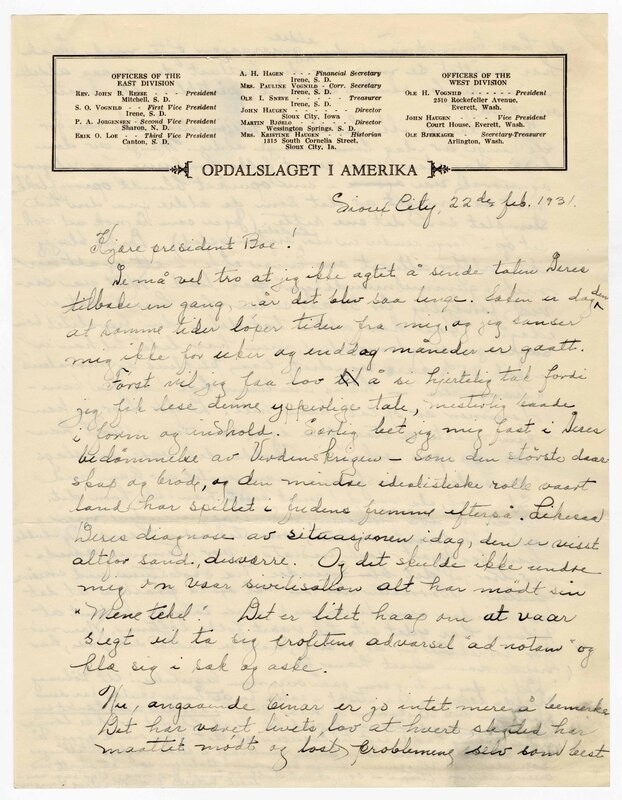 OFFICERS OF THE
EAST DIVISION
REV. JOHN B. REESE - - President
Mitchell, S. D.
S. O. VOGNILD - - First Vice President
Irene, S. D.
P. A. JORGENSEN - Second Vice President
Sharon, N. D.
ERIK O. LOE - - Third Vice President
Canton, S. D.
A. H. HAGEN - - - Financial Secretary
Irene, S. D.
MRS. PAULINE VOGNILD - Corr. Secretary
Irene, S. D.
OLE I. SNEVE - - - - Treasurer
Irene, S. D.
JOHN HAUGEN - - - - Director
Sioux City, Iowa
MARTIN BJØLO - - - - Director
Wessington Springs, S. D.
MRS. KRISTINE HAUGEN - - Historian
1315 South Cornelia Street,
Sioux City, Ia.
OFFICERS OF THE
WEST DIVISION
OLE H. VOGNILD - - - - - - President
2510 Rockefeller Avenue,
Everett, Wash.
JOHN HAUGEN - - - Vice President
Court House, Everett, Wash.
OLE BJERKAGER - - Secretary-Treasurer
Arlington, Wash.
OPDALSLAGET I AMERIKA
Sioux City, 22de feb. 1931.
Kjære president Boe!
De må vel tro at jeg ikke agtet å sende talen Deres
tilbake en gang, når det blev saa lenge. Saken er da den
at somme tider løper tiden fra mig, og jeg sanser
mig ikke før uker og enddog måneder er gaatt.
Først vil jeg faa lov å si hjertelig tak fordi
jeg fik lese denne ypperlige tale, mesterlig baade
i form og indhold. Særlig bet jeg mig fast i Deres
bedømmelse av Verdenskrigen – som den største daar
skap og brøde, og den mindre idealistiske rolle vaart
land har spillet i fredens fremme efterpå. Likesaa
Deres diagnose av situasjonen idag, den er visst
altfor sand, desværre. Og det skulde ikke undre
mig om vaar sivilisation alt har mødt sin
"Mene tekel". Det er litet haap om at vaar
slegt vil ta sig profetens advarsel "ad notam" og
klæ sig i sæk og aske.
Nu, angaaende er jo intet mere å bemerke
Det har været livets lov at hvert slegtled har
maattet mødt og løst problemene selv som best